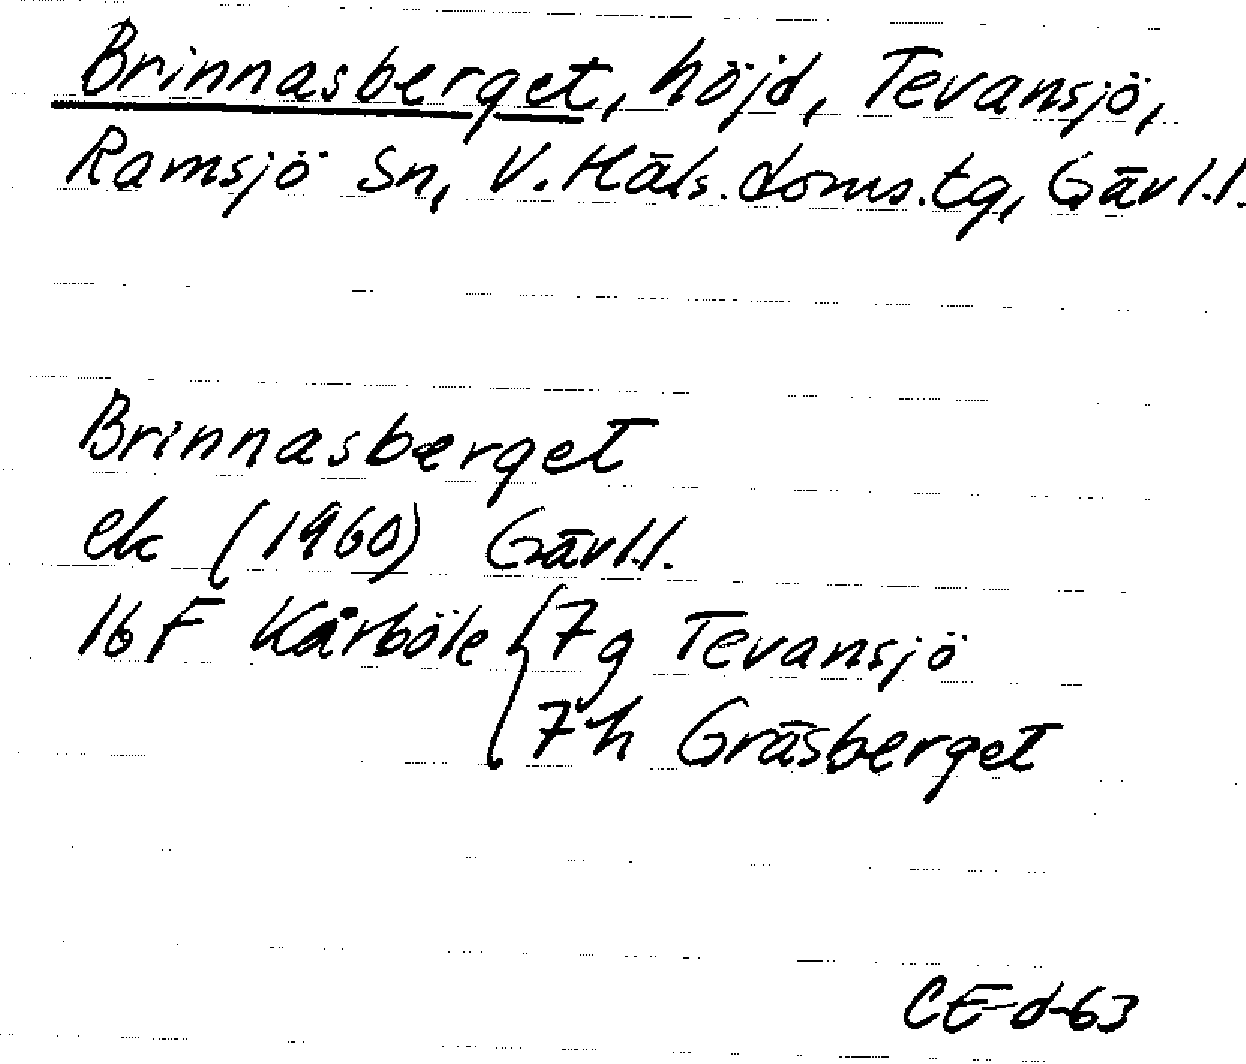 Brinnasberget, höjd, Tevansjö,
Ramsjö Sn, V. Häls. doms. tg, Gävl.l.
Brinnasberget
ek (1960) Gävl.l.
16 F Kårböle { 7g Tevansjö
7h Gräsberget
CE-d-63